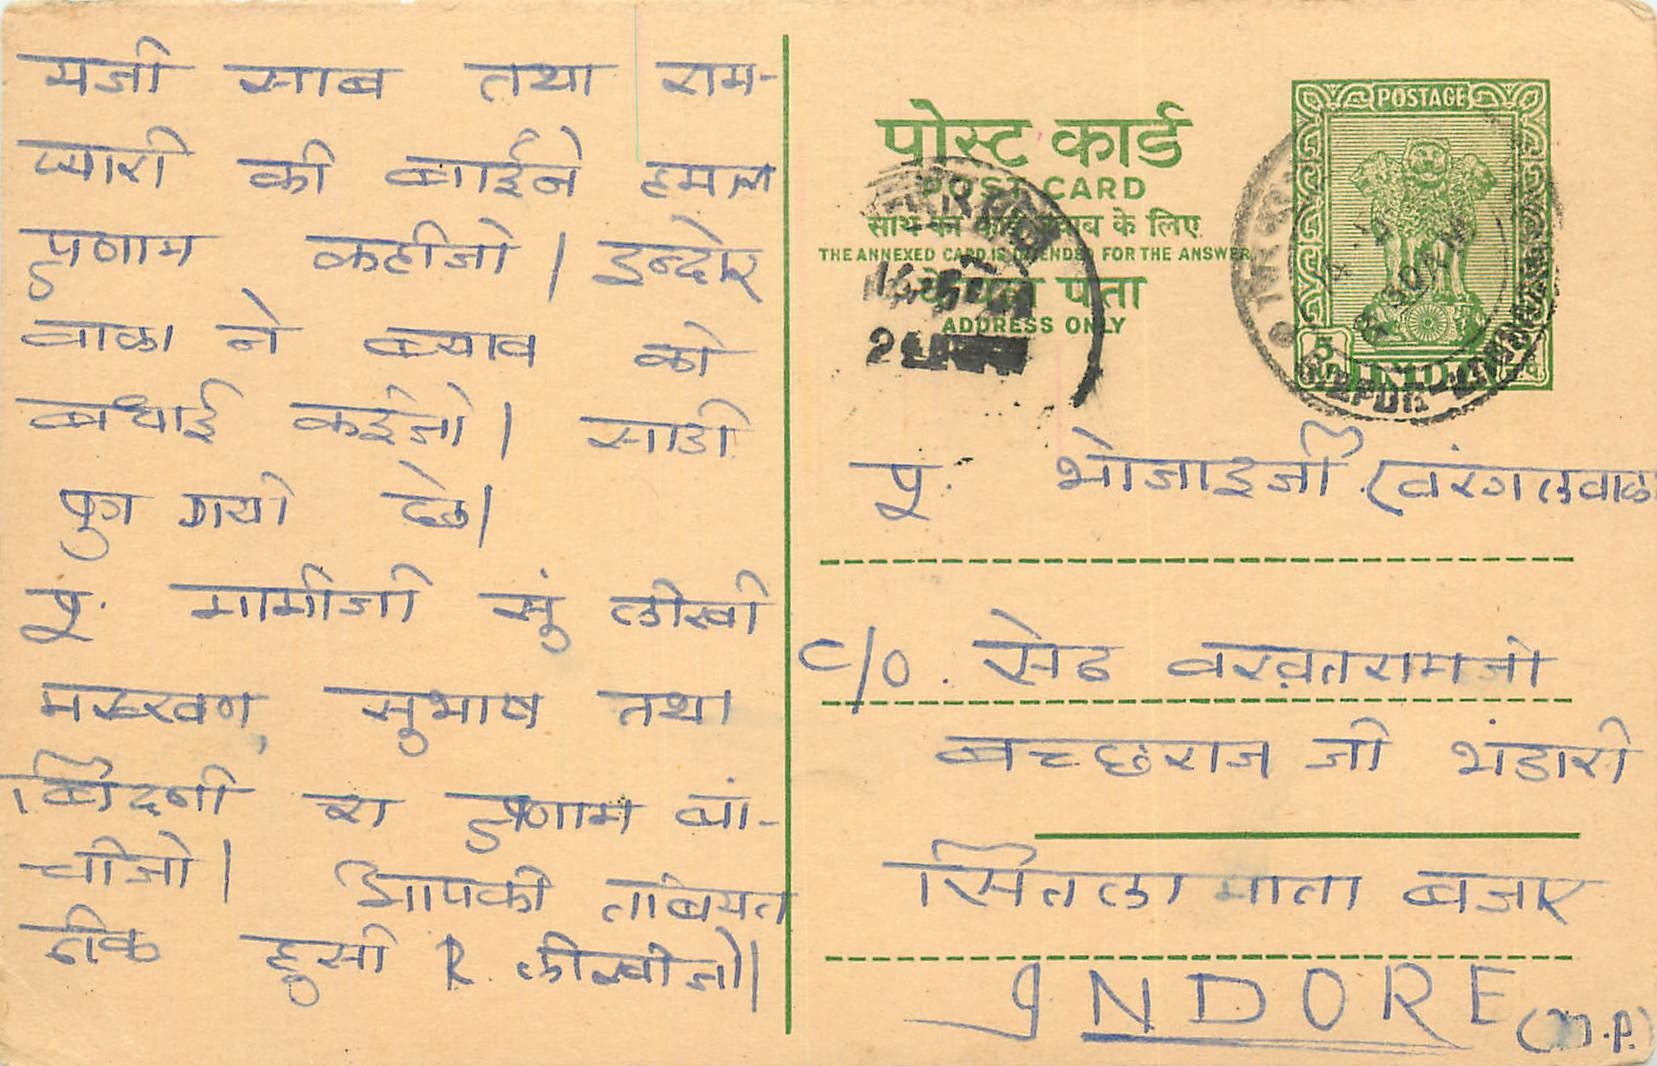 मजी साब तथा राम-
प्यारी की बाईने हमारा
प्रणाम कहीजो। इन्दोर
वाळा ने ब्याव की
बधाई कईजो। साडी
पुग गयी
पू. मामीजी सुं लीखी
सुभाष तथा
रा प्रणाम बां-
चीजो। आपकी तबियत
ठीक हुसी लीखीजो।
पोस्ट कार्ड
POST CARD
साथ का कार्ड जवाब के लिए
THE ANNEXED CARD IS INTENDED FOR THE ANSWER
पता
ADDRESS ONLY
POSTAGE
INDIA
पू. भोजाइजी (वरंगलवाळा
C/O. सेठ वख़तरामजी
बच्छराज जी भंडारी
सितला माता बजार
INDORE (M.P.)